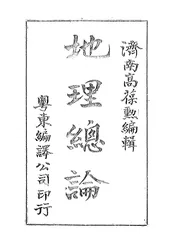 濟南高葆勳編輯
地理總論
粵東編譯公司印行